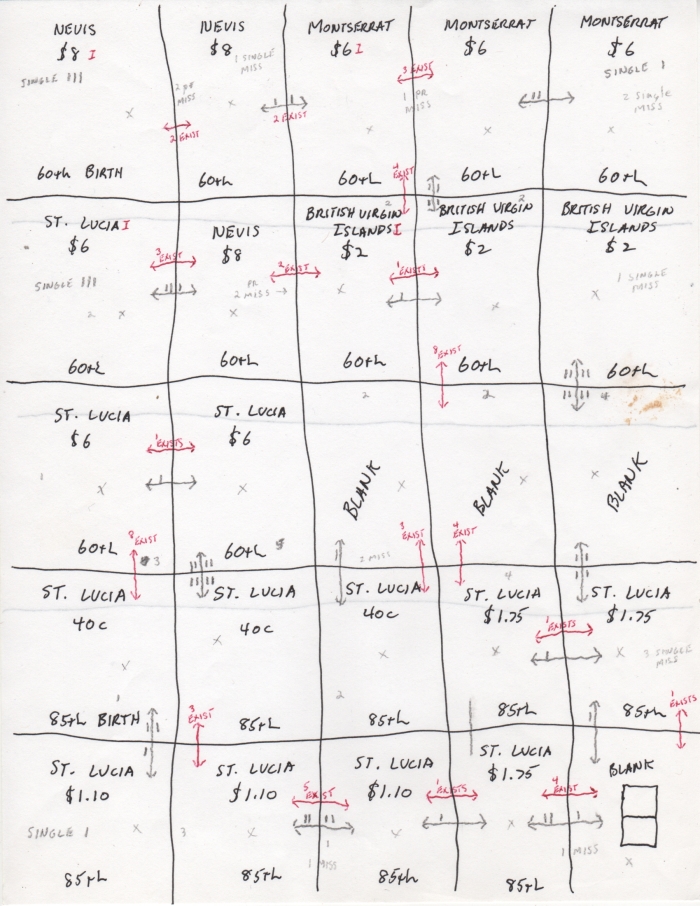 NEVIS
$8 I
SINGLE III
2 PR
MISS
2 EXIST
60th BIRTH
NEVIS
$8
1 SINGLE
MISS
2 EXIST
60th
MONTSERRAT
$6 I
3 EXIST
1 PR
MISS
60th
4
EXIST
MONTSERRAT
$6
60th
MONTSERRAT
$6
SINGLE 1
2 Single
MISS
60th
ST. LUCIA I
$6
3 EXIST
SINGLE III
2
60th
NEVIS
$8
2 EXIST
PR
2 MISS →
60th
2
BRITISH VIRGIN
ISLANDS I
$2
1 EXIST
60th
2
BRITISH VIRGIN
ISLANDS
$2
8 EXIST
60th
BRITISH VIRGIN
ISLANDS
$2
1 SINGLE
MISS
60th
ST. LUCIA
$6
1 EXISTS
1
60th
8
EXIST
3
ST. LUCIA
$6
60th
2
BLANK
3
EXIST
2 MISS
2
BLANK
4
EXIST
4
4
BLANK
ST. LUCIA
40c
1
85th BIRTH
ST. LUCIA
40c
3
EXIST
85th
ST. LUCIA
40c
2
85th
ST. LUCIA
$1.75
1 EXISTS
85th
ST. LUCIA
$1.75
3 SINGLE
MISS
85th
1
EXISTS
ST. LUCIA
$1.10
SINGLE 1
85th
ST. LUCIA
$1.10
3
5 EXIST
1 MISS
85th
ST. LUCIA
$1.10
1 EXISTS
85th
ST. LUCIA
$1.75
4 EXIST
1 MISS
85th
BLANK